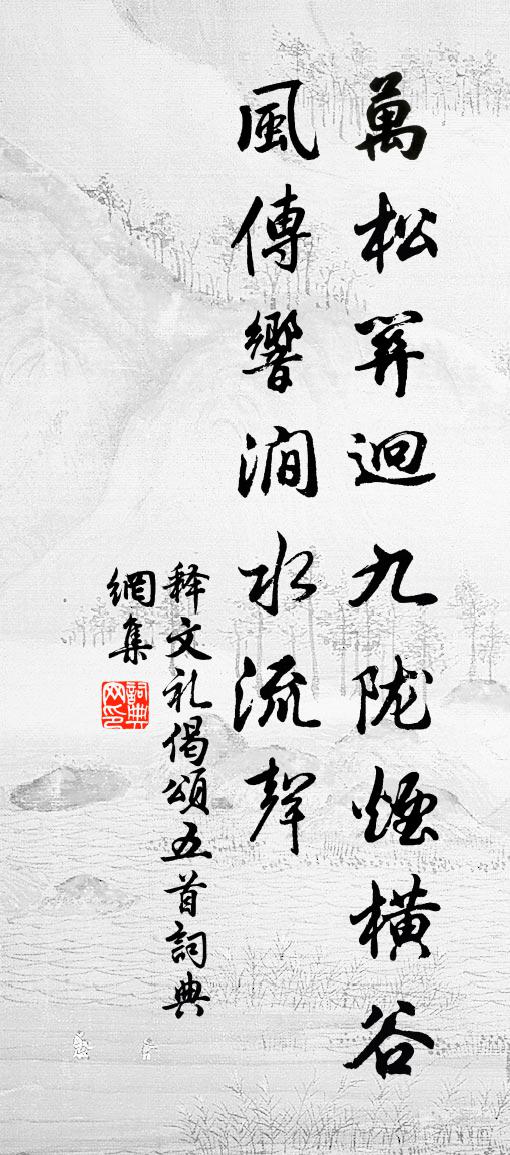 萬松關迥九陇煙橫谷
風傳響澗水流聲
释文礼偈頌五首詞典
網集
詞典网印